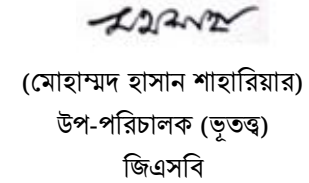 (মোহাম্মদ হাসান শাহারিয়ার)
উপ-পরিচালক (ভূতত্ত্ব)
জিএসবি